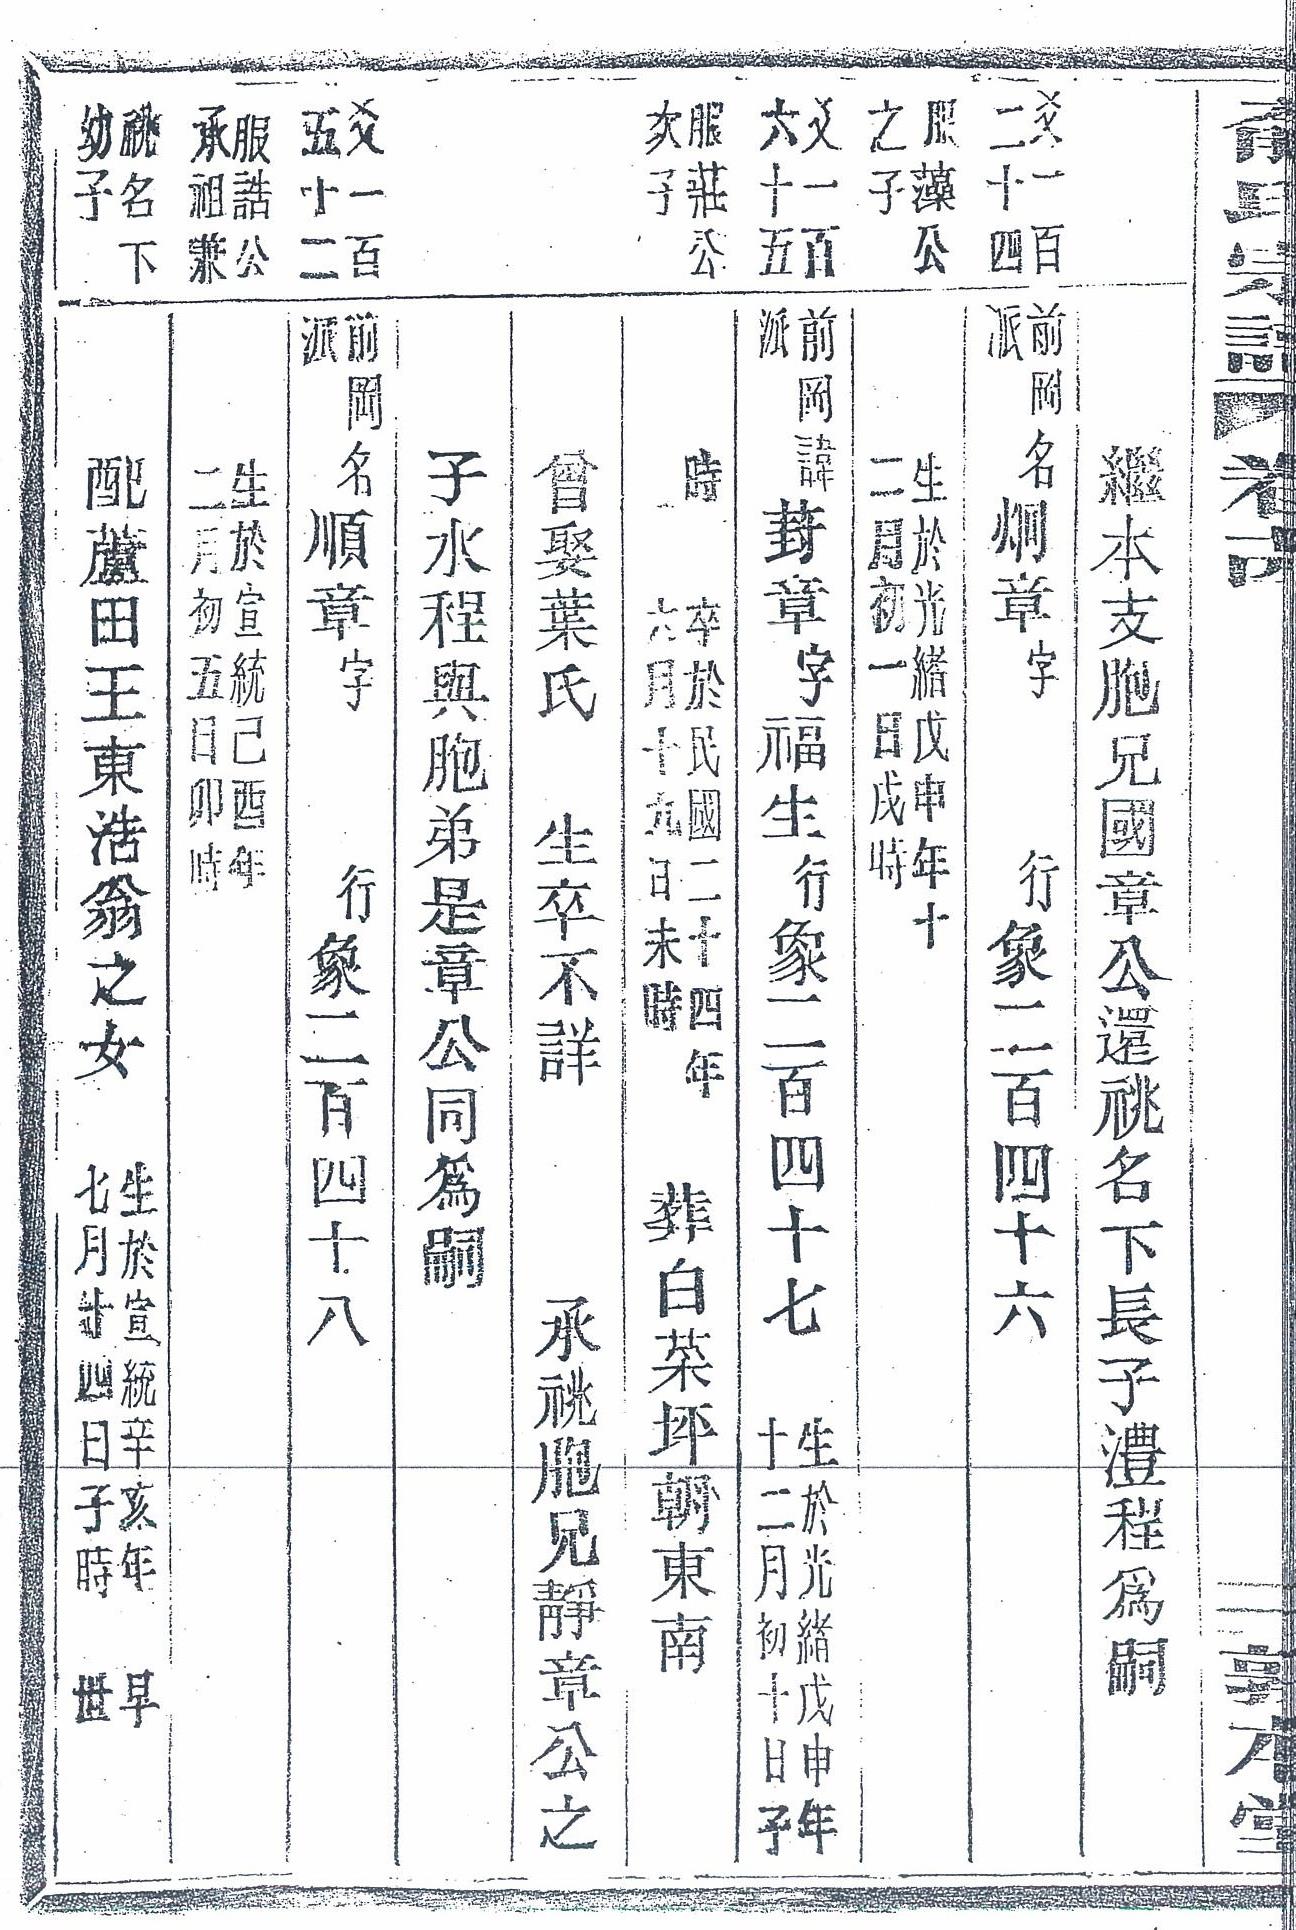 氏宗譜 卷
本堂
繼本支胞兄國章公還祧名下長子澧程爲嗣
爻一百
二十四
前岡
派
名炯章字 行象二百四十六
服藻公
之子
生於光緒戊申年十
二月初一日戌時
爻一百
六十五
前岡
派
諱葑章字福生行象二百四十七
生於光緒戊申年
十二月初十日子
服莊公
次子
時
卒於民國二十四年
六月十九日未時
葬白菜坪朝東南
曾娶葉氏 生卒不詳 承祧胞兄靜章公之
子水程與胞弟是章公同爲嗣
爻一百
五十二
前岡
派
名順章字 行象二百四十八
服誥公
承祖兼
生於宣統己酉年
二月初五日卯時
祧名下
幼子
配蘆田王東浩翁之女
生於宣統辛亥年
七月廿四日子時
早
世